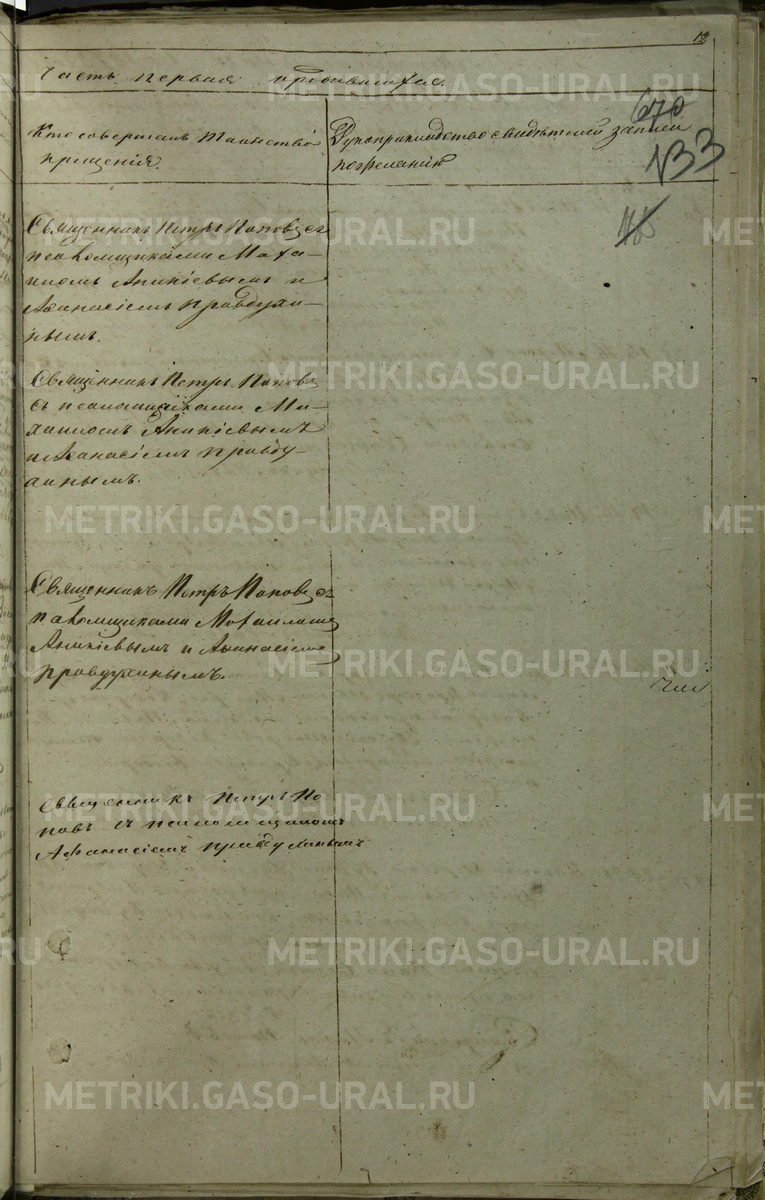 18
Часть первая
670
Кто совершалъ таинство Рукоприкладство свидѣтелей записи
крещенія. по желанію
133
Священникъ Петръ Поповъ съ
псаломщиками Миха-
иломъ Аникіевымъ и
Аѳанасіемъ Правдухи-
нымъ.
Священникъ Петръ Поповъ
съ псаломщиками Ми-
хаиломъ Аникіевымъ
и Аѳанасіемъ Правду-
хинымъ.
Священникъ Петръ Поповъ съ
псаломщиками Михаиломъ
Аникіевымъ и Аѳанасіемъ
Правдухинымъ.
Священникъ Петръ По
повъ съ псаломщикомъ
Афанасіемъ Правдухинымъ
METRIKI.GASO-URAL.RU